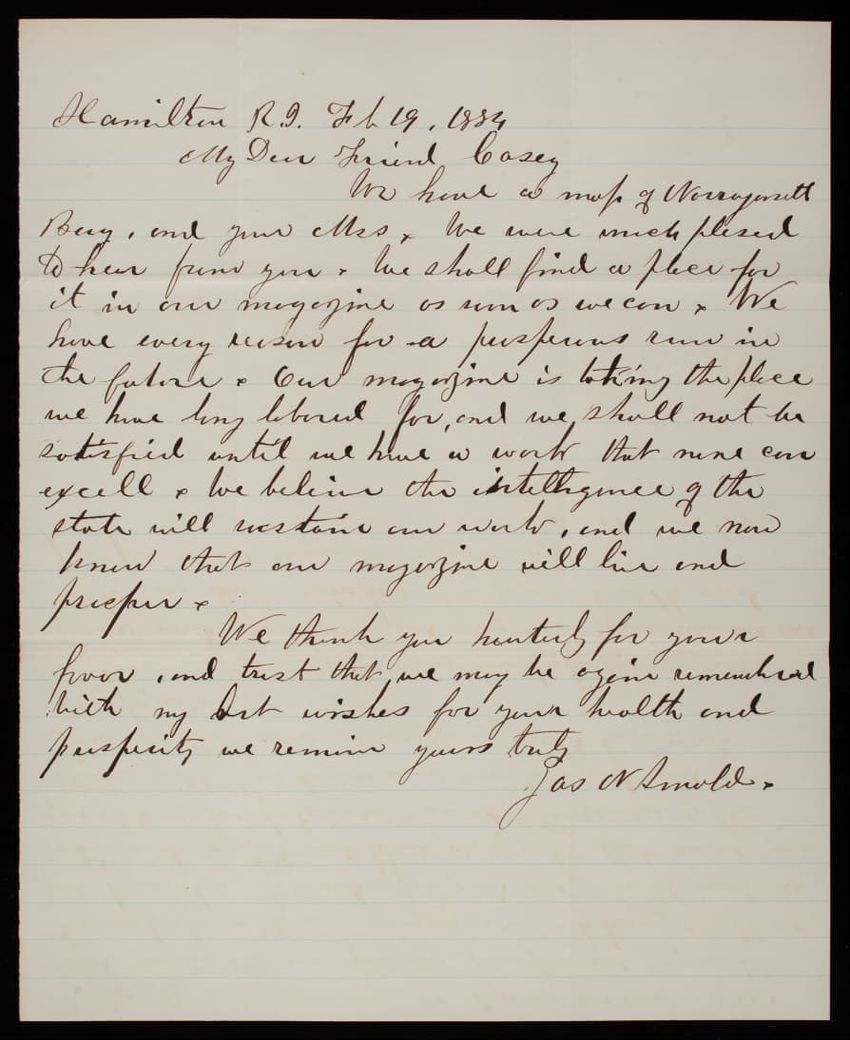 Hamilton R.I. Feb 19, 1884
My Dear Friend Casey
We have a map of Narragansett
Bay, and your Mss. We were much plesed
to hear from you. We shall find a place for
it in our magazine as soon as we can. We
have every reason for a prosperous run in
the future. Our magazine is taking the place
we have long labored for, and we shall not be
satisfied until we have a work that none can
excell. We believe the intelligence of the
state will sustain our work, and we now
know that our magazine will live and
prosper.
We thank you heartily for your
favor, and trust that we may be again remembered
With my best wishes for your health and
prosperity we remain yours truly
Jas N Arnold.